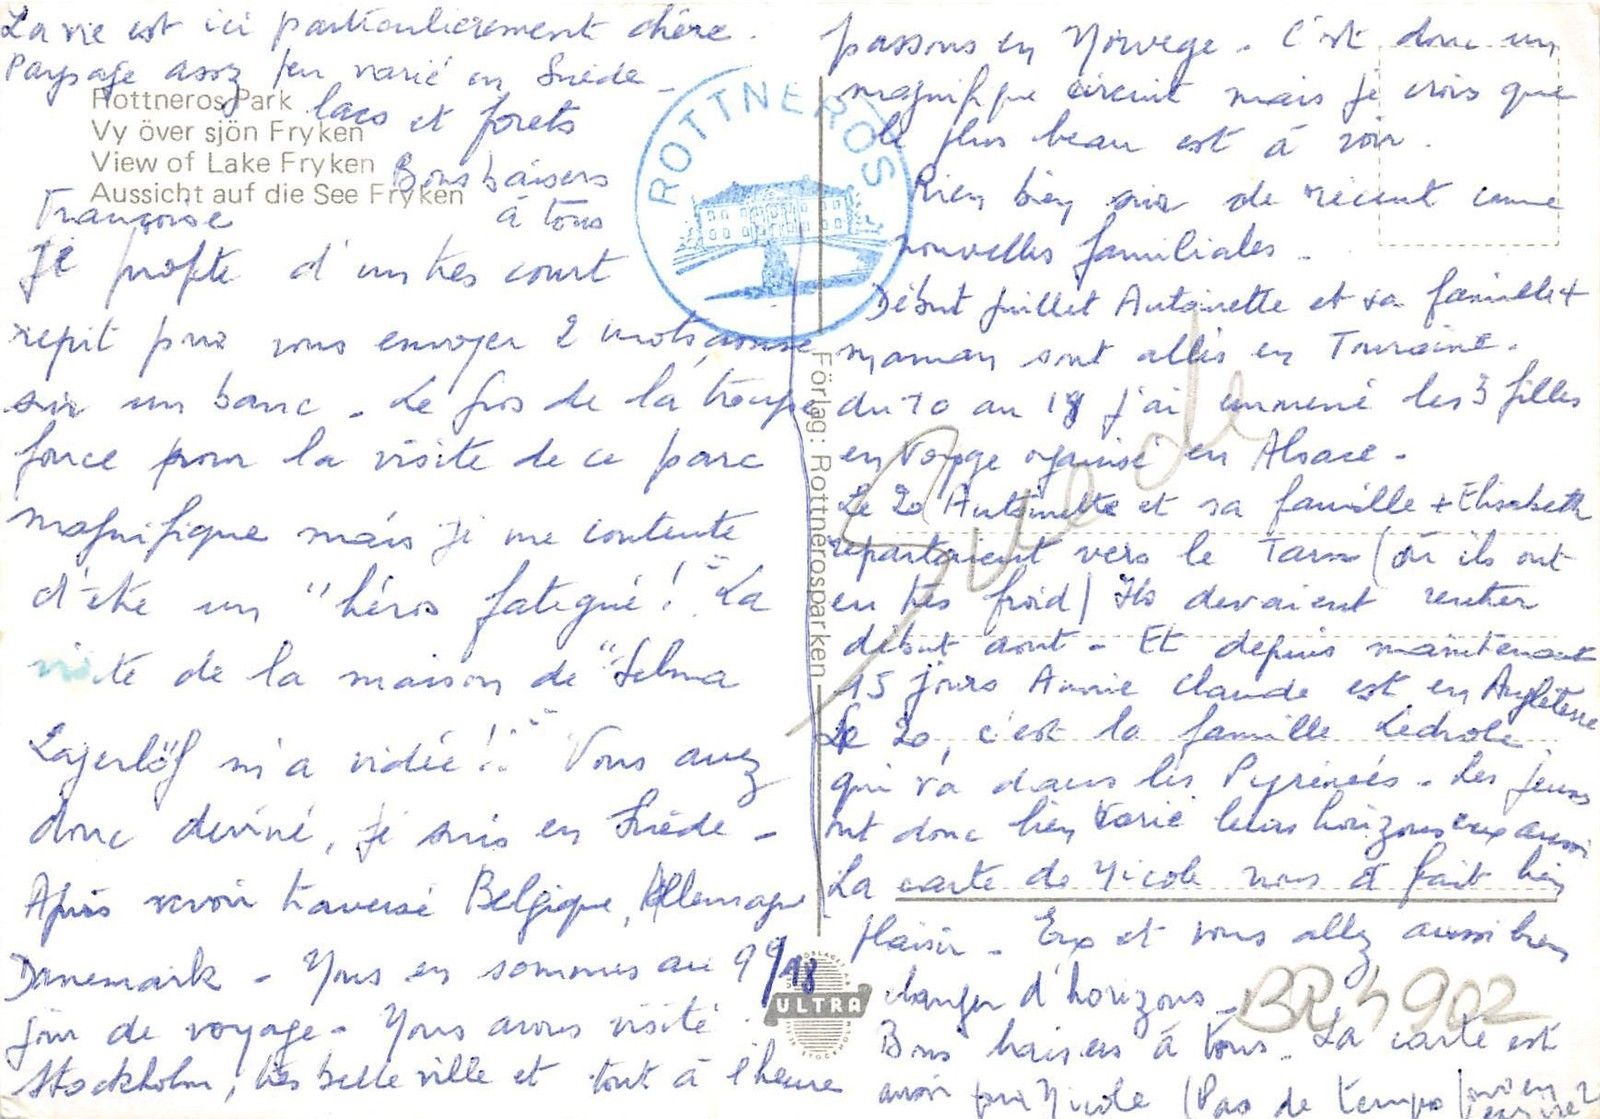 La vie est ici particulièrement chère.
Paysage assez peu varié en Suède -
lacs et forêts
Bons baisers
à tous
Françoise
Rottneros Park
Vy över sjön Fryken
View of Lake Fryken
Aussicht auf die See Fryken
Je profite d'un très court
repit pour vous envoyer 2 mots, assise
sur un banc - Le gros de la troupe
fonce pour la visite de ce parc
magnifique mais je me contente
d'être un "héros fatigué!" La
visite de la maison de "Selma
Lagerlöf m'a vidée!" Vous avez
donc deviné, je suis en Suède -
Après avoir traversé Belgique, Allemagne
Danemark - Nous en sommes au 9/18
jour de voyage - Nous avons visité
Stockholm, très belle ville et tout à l'heure
ROTTNEROS
Förlag: Rottnerosparken
ULTRA
passons en Norvege - C'est donc un
magnifique circuit mais je crois que
le plus beau est à voir.
Rien bien sûr de récent comme
nouvelles familiales -
Début juillet Antoinette et sa famille +
maman sont allés en Touraine.
du 10 au 18 j'ai emmené les 3 filles
en voyage organisé en Alsace -
Le 20 Antoinette et sa famille + Elisabeth
repartaient vers le Tarn (où ils ont
eu très froid) Ils devaient rentrer
début aout - Et depuis maintenant
15 jours Annie Claude est en Angleterre
Le 20, c'est la famille
qui va dans les Pyrénées - Les jeunes
ont donc bien varié leurs horizons eux aussi
La carte de Nicole nous a fait bien
plaisir - Eux et vous allez aussi bien
changer d'horizons -
Bons baisers à tous - La carte est
aussi pour Nicole (Pas de temps
Suede
BR 4902